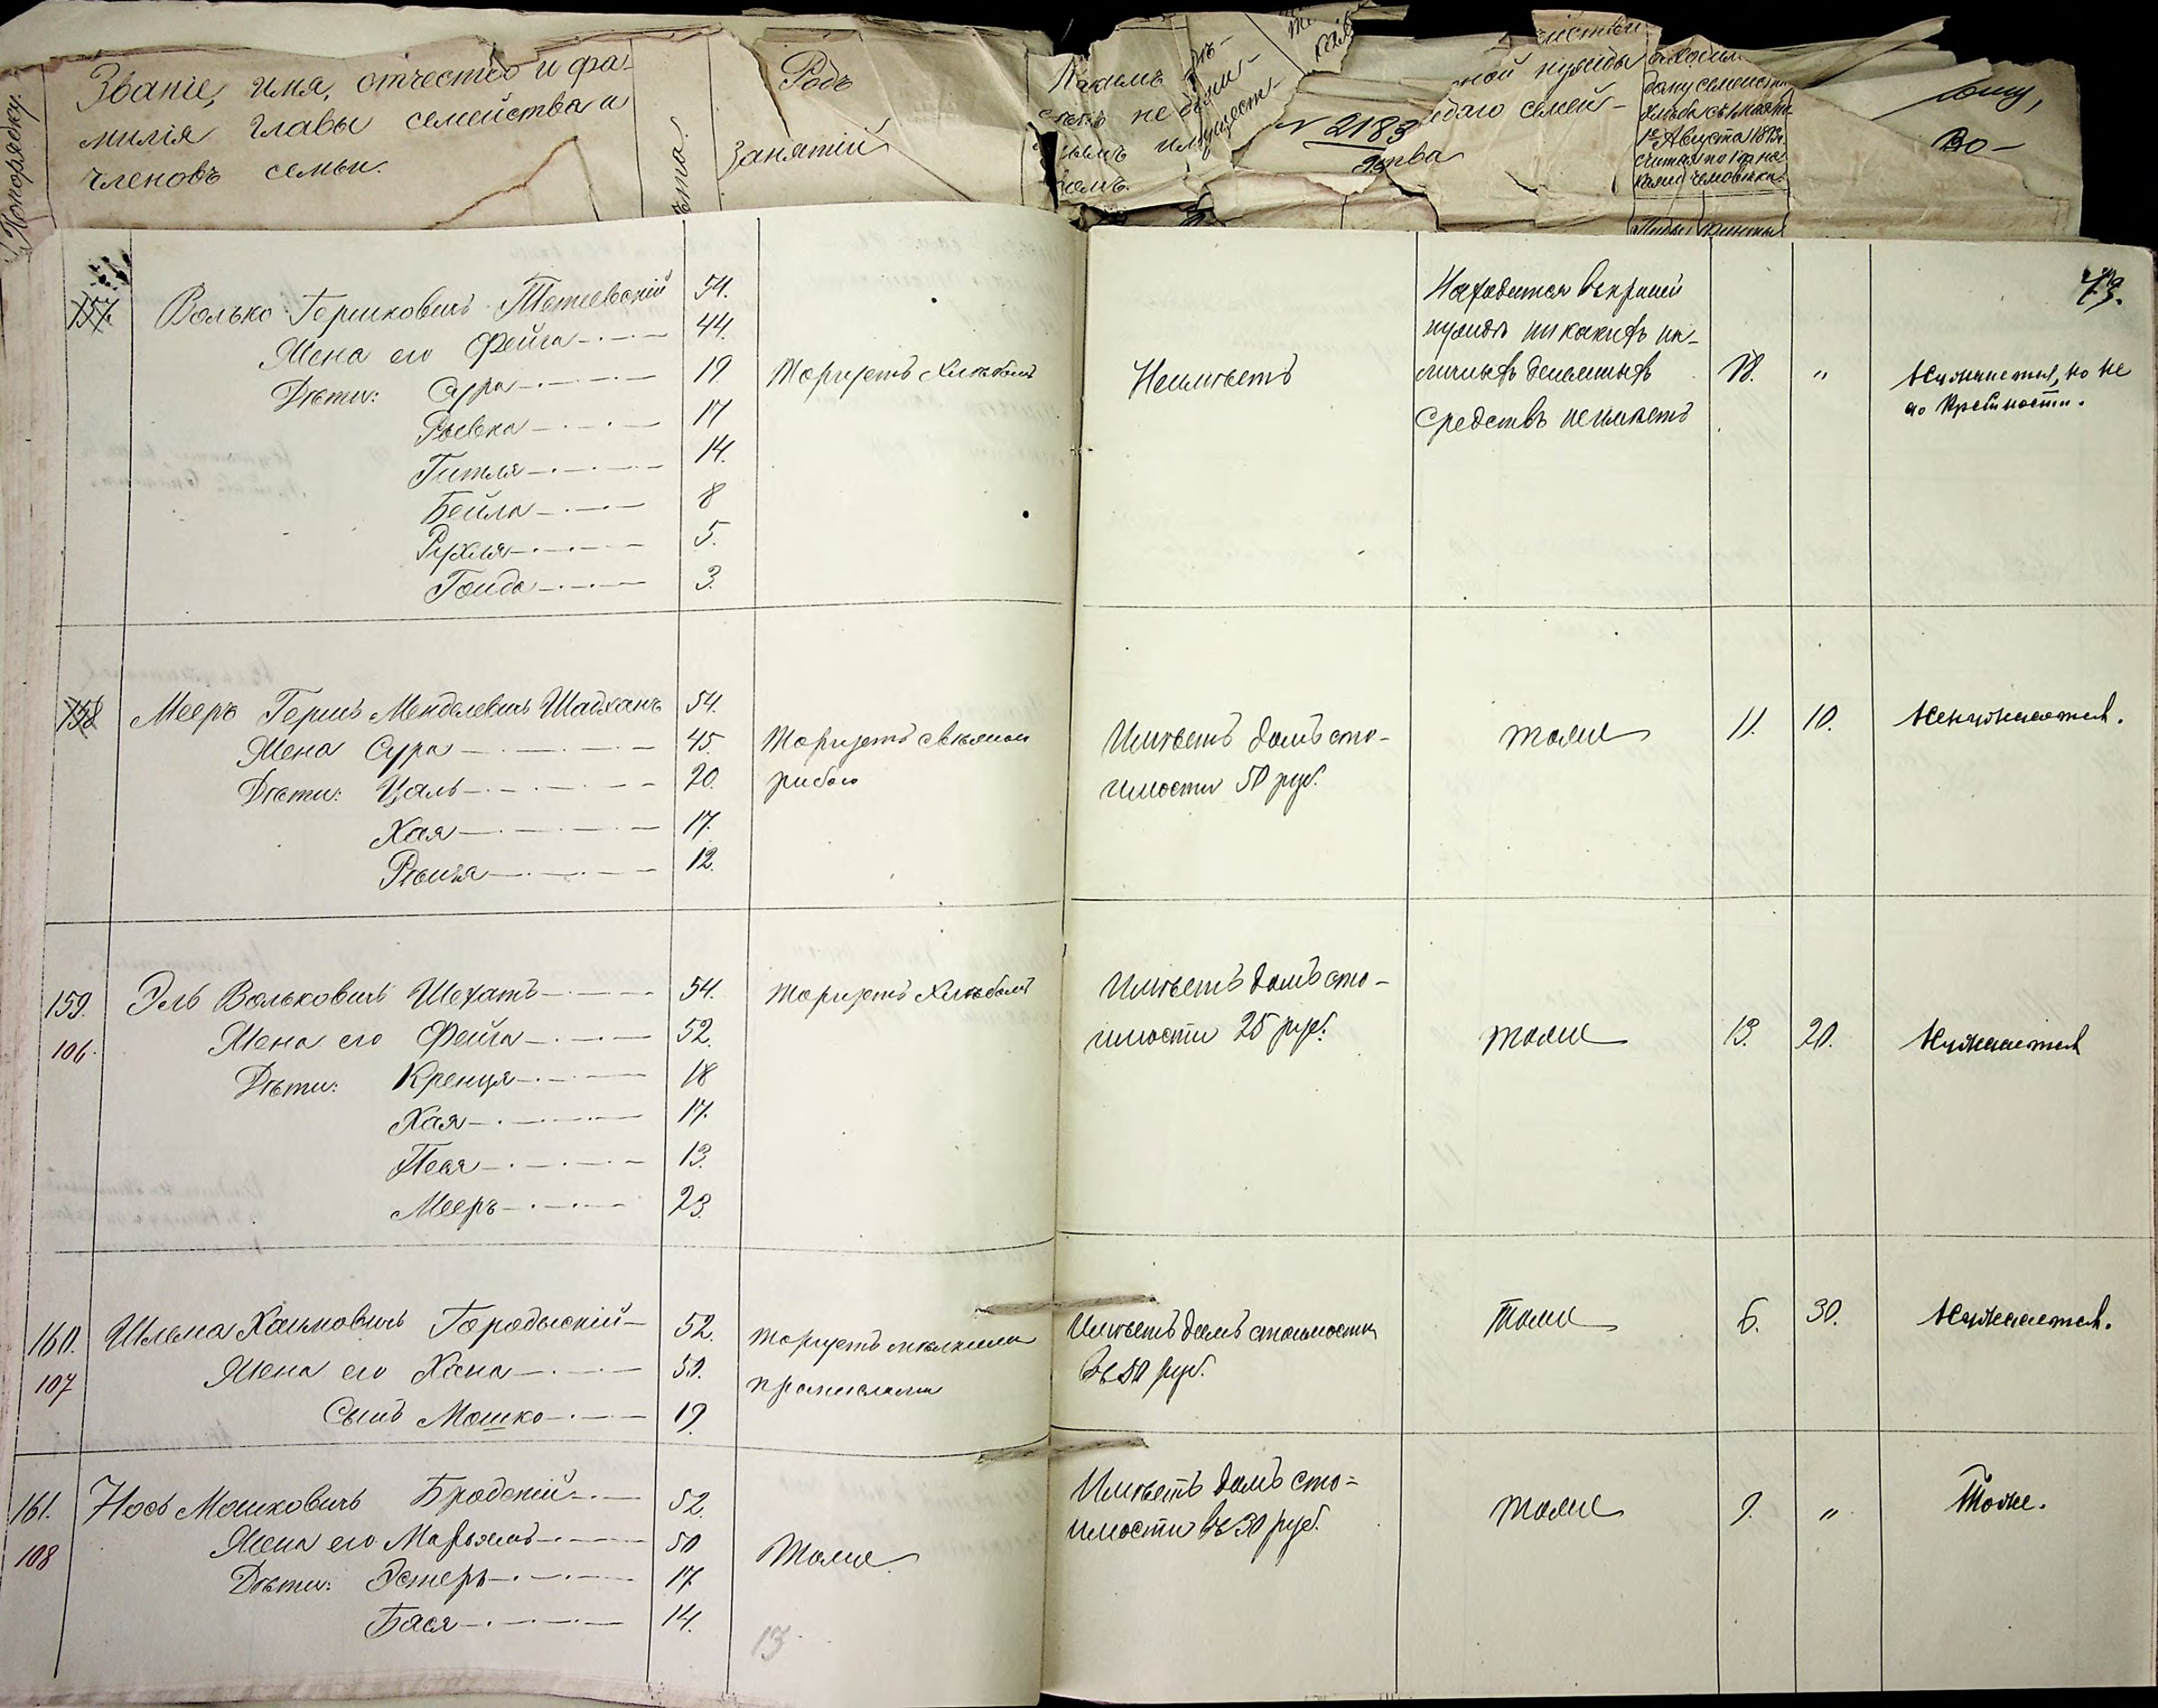 Попорядку.
Званіе, имя, отчество и фа-
милія главы семейства и
членовъ семьи.
Родъ
занятій
N 2183
ной нужды
даго семей-
ства
дому семейству
1е Августа 1892 г.
157.
Волько Гершковичъ Тетіевскій 54.
Жена его Фейга 44.
Дѣти: Сура 19.
Рывка 17
Гитля 14.
Бейла 8
Рухля 5.
Голда 3.
Торгуетъ Хлѣбомъ
Неимѣетъ
Находится вкрайней
нуждѣ никакихъ на-
личныхъ денежныхъ
Средствъ неимѣетъ
18. "
Нуждается, но не
до крайности.
73.
158
Мееръ Гершъ Менделевичъ Шадханъ 54.
Жена Сура 45.
Дѣти: Цаль 20.
Хая 17.
12.
Торгуетъ свѣжою
рибою
Имѣетъ домъ сто-
имости 50 руб.
тоже
11. 10.
Ненуждается.
159.
106.
Эль Вольковичъ Шехатъ 54.
Жена его Фейга 52.
Дѣти: Кренця 18
Хая 17.
Песя 13.
Мееръ 23.
Торгуетъ Хлѣбомъ
Имѣетъ домъ сто-
имости 25 руб.
тоже
13. 20.
Нуждается
160.
107
Шльма Хаимовичъ Городыскій 52.
Жена его Хана 50.
Сынъ Мошко 19.
Торгуетъ мѣлкими
промислами
Имѣетъ домъ стоимости
въ 50 руб.
Тоже
6. 30.
Нуждается.
161.
108
Йось Мошковичъ Бродскій 52.
Жена его Марьямъ 50
Дѣти: Эстеръ 17.
Бася 14.
Тоже
13
Имѣетъ домъ сто=
имости въ 30 руб.
тоже
9. "
Тоже.